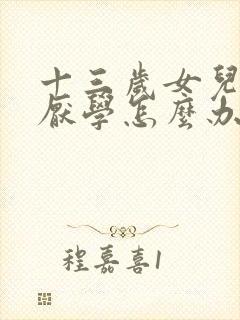 十三歲女兒
厭學怎麼办
程嘉喜1